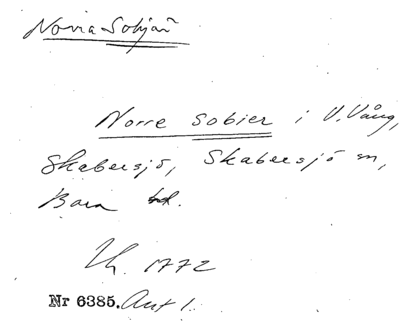 Norra Sobjär
Norre Sobier i V. Vång,
Skabersjö, Skabersjö sn,
Bara hd.
Lh. 1772
Nr 6385. Akt 1.